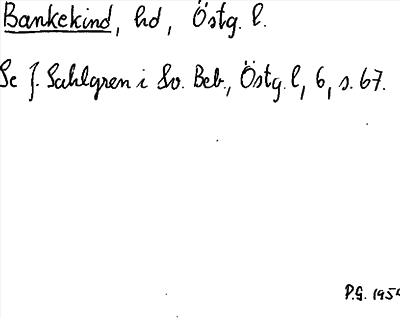 Bankekind, hd, Östg. l.
Se J. Sahlgren i Sv. Beb., Östg. l, 6, s. 67.
P.G. 1954